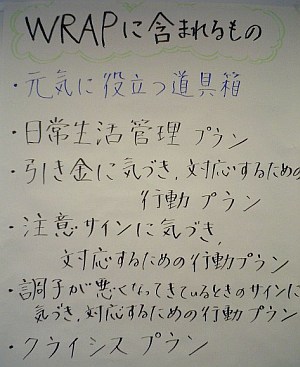 WRAPに含まれるもの
・元気に役立つ道具箱
・日常生活管理 プラン
・引き金に気づき、対応するための
行動 プラン
・注意サインに気づき、
対応するための行動プラン
・調子が悪くなってきているときのサインに
気づき、対応するための行動プラン
・クライシス プラン